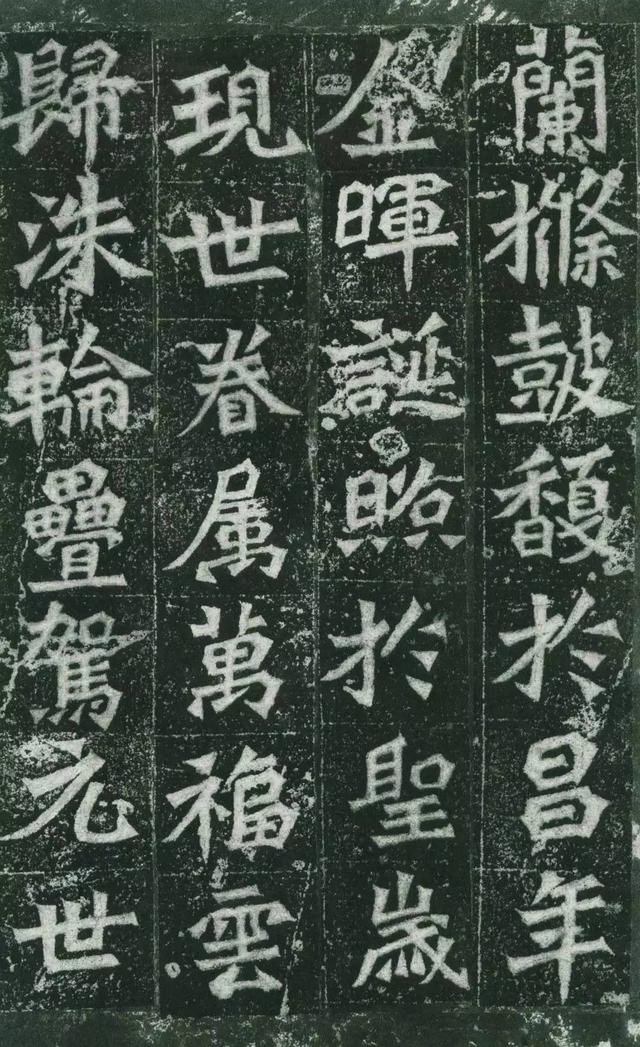 蘭條鼓馥於昌年
金暉誕照於聖歲
現世眷属萬福雲
歸洙輪疊駕元世